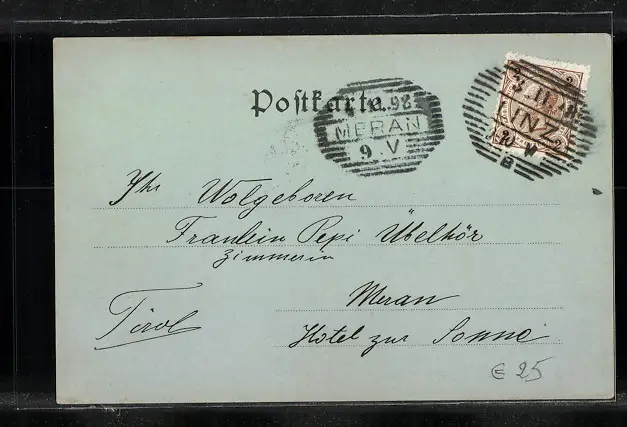 Postkarte
98
MERAN
9 V
2
3 11
INZ
W
B
Ihr Wolgeboren
Fraulein Pepi Übelhör
Zimmerin
Meran
Tirol
Hotel zur Sonne
€ 25